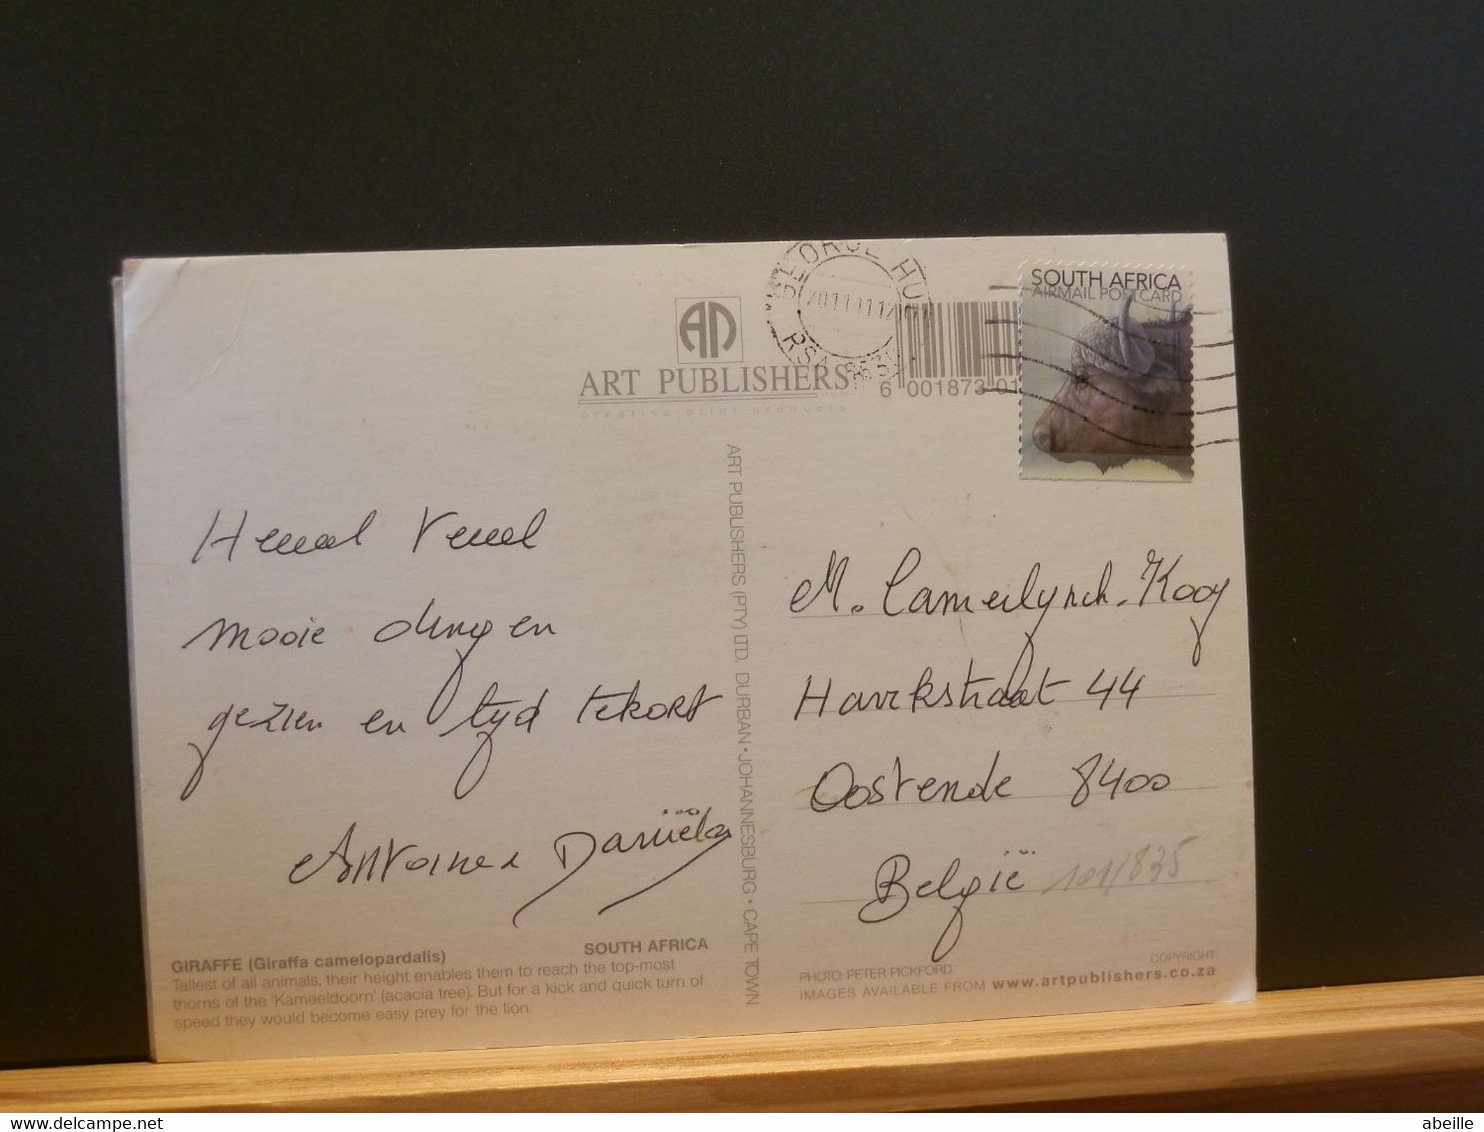 SOUTH AFRICA
AIRMAIL POSTCARD
GEORGE HU
RSA
ART PUBLISHERS
creative print products
6 001873 01
ART PUBLISHERS (PTY) LTD. DURBAN • JOHANNESBURG • CAPE TOWN
veel
mooie dingen
gezien en tijd tekort
Antoine & Daniëla
M. Camerlynck-Kooy
Oostende 8400
België 101/835
GIRAFFE (Giraffa camelopardalis) SOUTH AFRICA
Tallest of all animals, their height enables them to reach the top-most
thorns of the 'Kameeldoorn' (acacia tree). But for a kick and quick turn of
speed they would become easy prey for the lion.
COPYRIGHT
PHOTO: PETER PICKFORD
IMAGES AVAILABLE FROM www.artpublishers.co.za
abeille